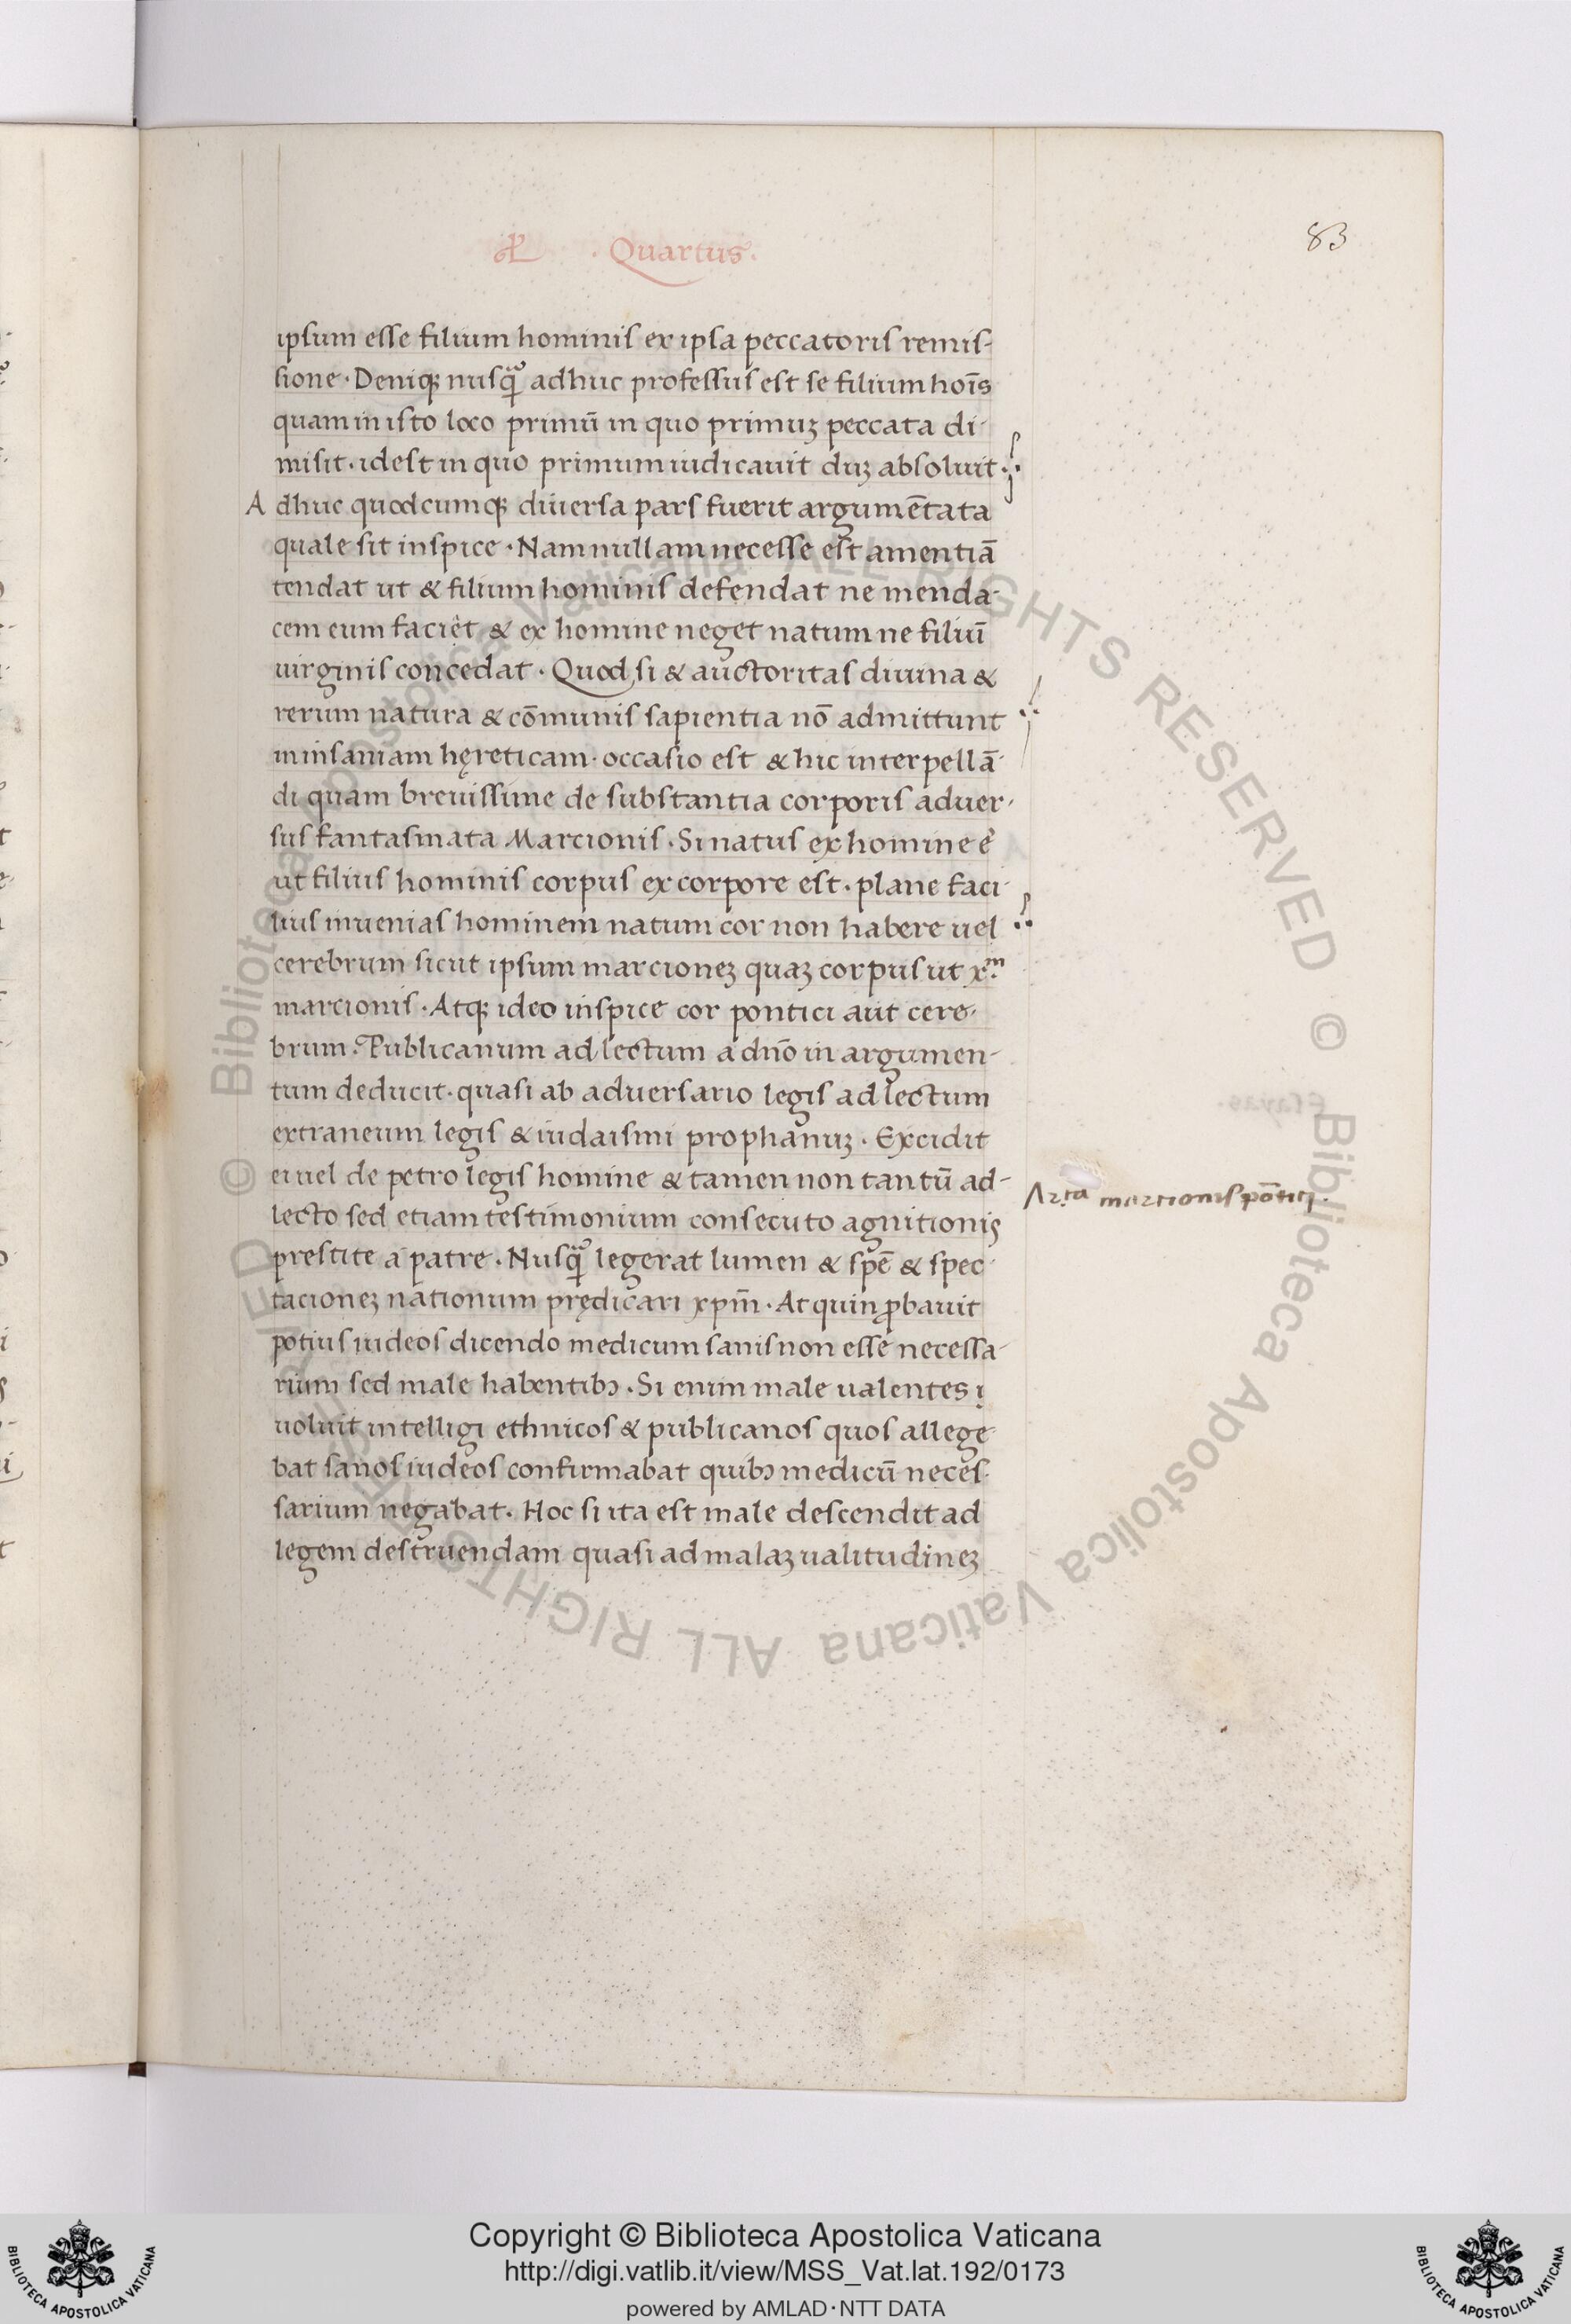 · Quartus ·
83
ipsum esse filium hominis ex ipsa peccatoris remis-
sione · Deniqꝫ nusqͣ̃ adhuc professus est se filium hoīs
quam in isto loco primū in quo primuꝫ peccata di-
misit · idest in quo primum iudicauit duꝫ absoluit ·
Adhuc quodcumqꝫ diuersa pars fuerit argumētata
quale sit inspice · Nam nullam necesse est amentiā
tendat ut & filium hominis defendat ne menda-
cem eum faciēt & ex homine neget natum ne filiuī
uirginis concedat · Quod si & auctoritas diuina &
rerum natura & cōmunis sapientia nō admittunt
in insaniam hęreticam · occasio est & hic interpellā-
di quam breuissime de substantia corporis aduer-
sus fantasmata Marcionis · Si natus ex homine ē
ut filius hominis corpus ex corpore est · plane faci-
lius inuenias hominem natum cor non habere uel
cerebrum sicut ipsum marcioneꝫ quaꝫ corpus ut xᵐ·
marcionis · Atqꝫ ideo inspice cor pontici aut cere-
brum · Publicanum ad lectum a dño in argumen-
tum deducit · quasi ab aduersario legis ad lectum
extraneum legis & iudaismi prophanuꝫ · Excidit
ei uel de petro legis homine & tamen non tantū ad-
marcionis pōtici ·
lecto sed etiam testimonium consecuto agnitionis
prestite a patre · Nusqͣ̃ legerat lumen & spē & spec-
tacioneꝫ nationum prędicari xp̄m · At quin ꝓbauit
potius iudeos dicendo medicum sanis non esse necessa-
rium sed male habentibꝰ · Si enim male ualentes i
uoluit intelligi ethnicos & publicanos quos allege-
bat sanos iudeos confirmabat quibꝰ medicū neces-
sarium negabat · Hoc si ita est male descendit ad
legem destruendam quasi ad malaꝫ ualitudineꝫ
© Biblioteca Apostolica Vaticana ALL RIGHTS RESERVED © Biblioteca Apostolica Vaticana ALL RIGHTS RESERVED
Copyright © Biblioteca Apostolica Vaticana
http://digi.vatlib.it/view/MSS_Vat.lat.192/0173
powered by AMLAD·NTT DATA
BIBLIOTECA APOSTOLICA VATICANA
BIBLIOTECA APOSTOLICA VATICANA